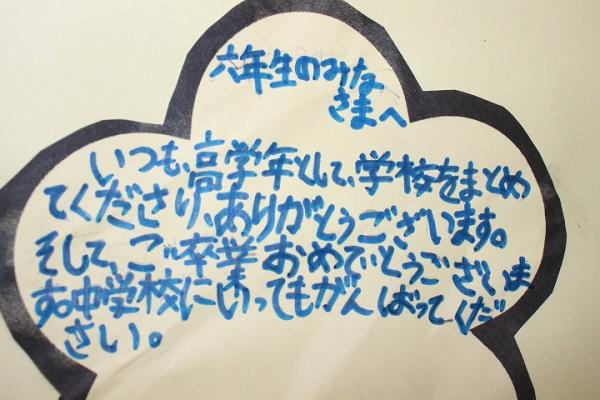 六年生のみな
さまへ
いつも、高学年として、学校をまとめ
てくださり、ありがとうございます。
そして、ご卒業おめでとうございま
す。中学校にいってもがんばってくだ
さい。